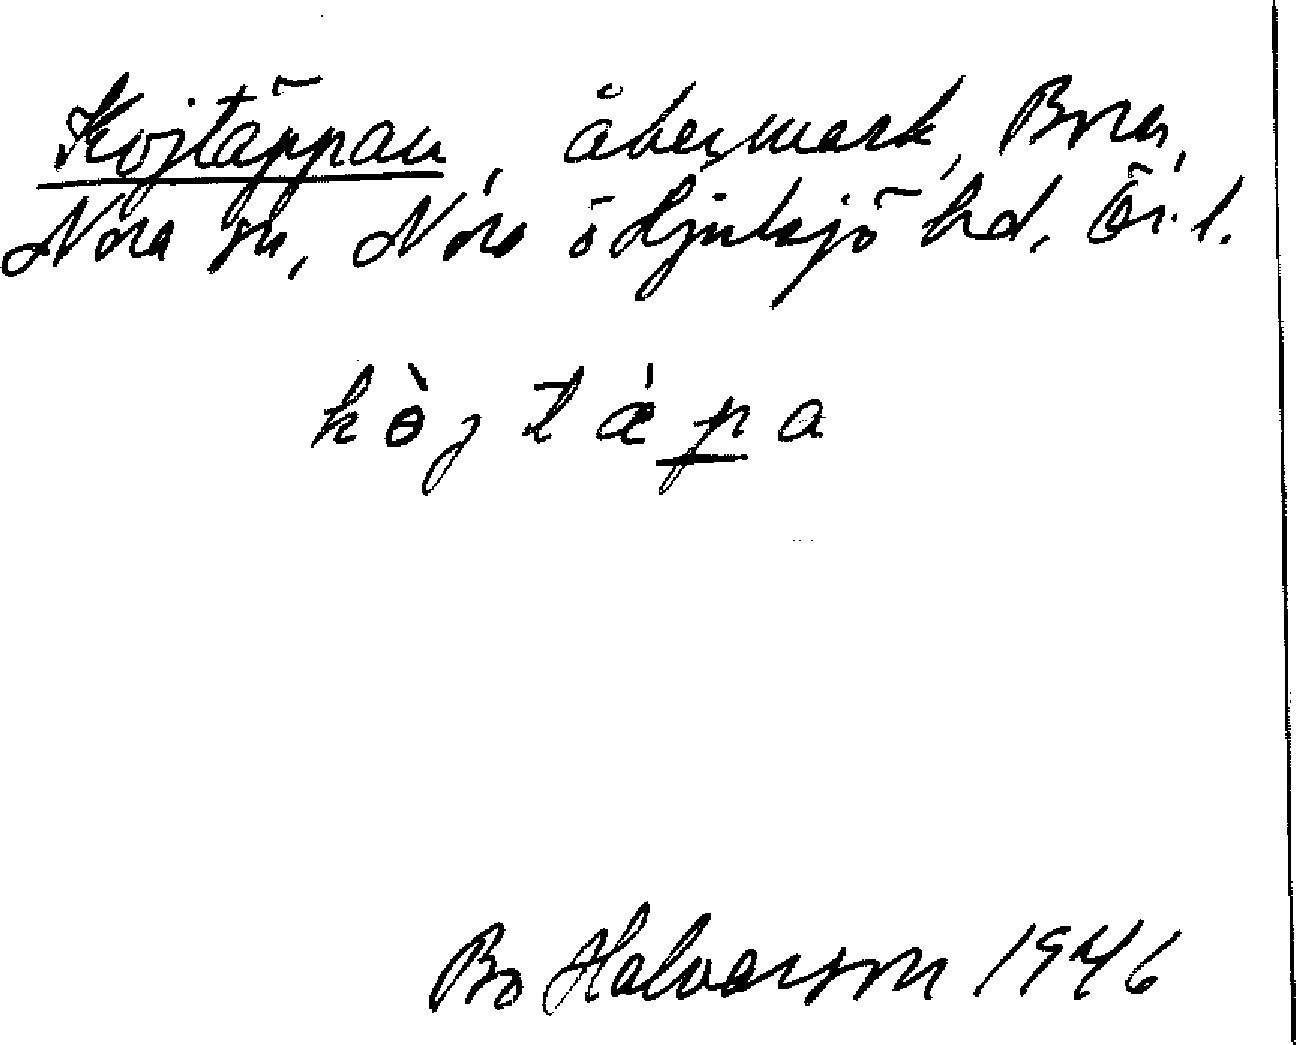 Kojtäppan, åbermark, Bora,
Nora sn, Nora o Hjulsjö hd, Ör. l.
kòjtǽpa
Bo Halvarson 1946